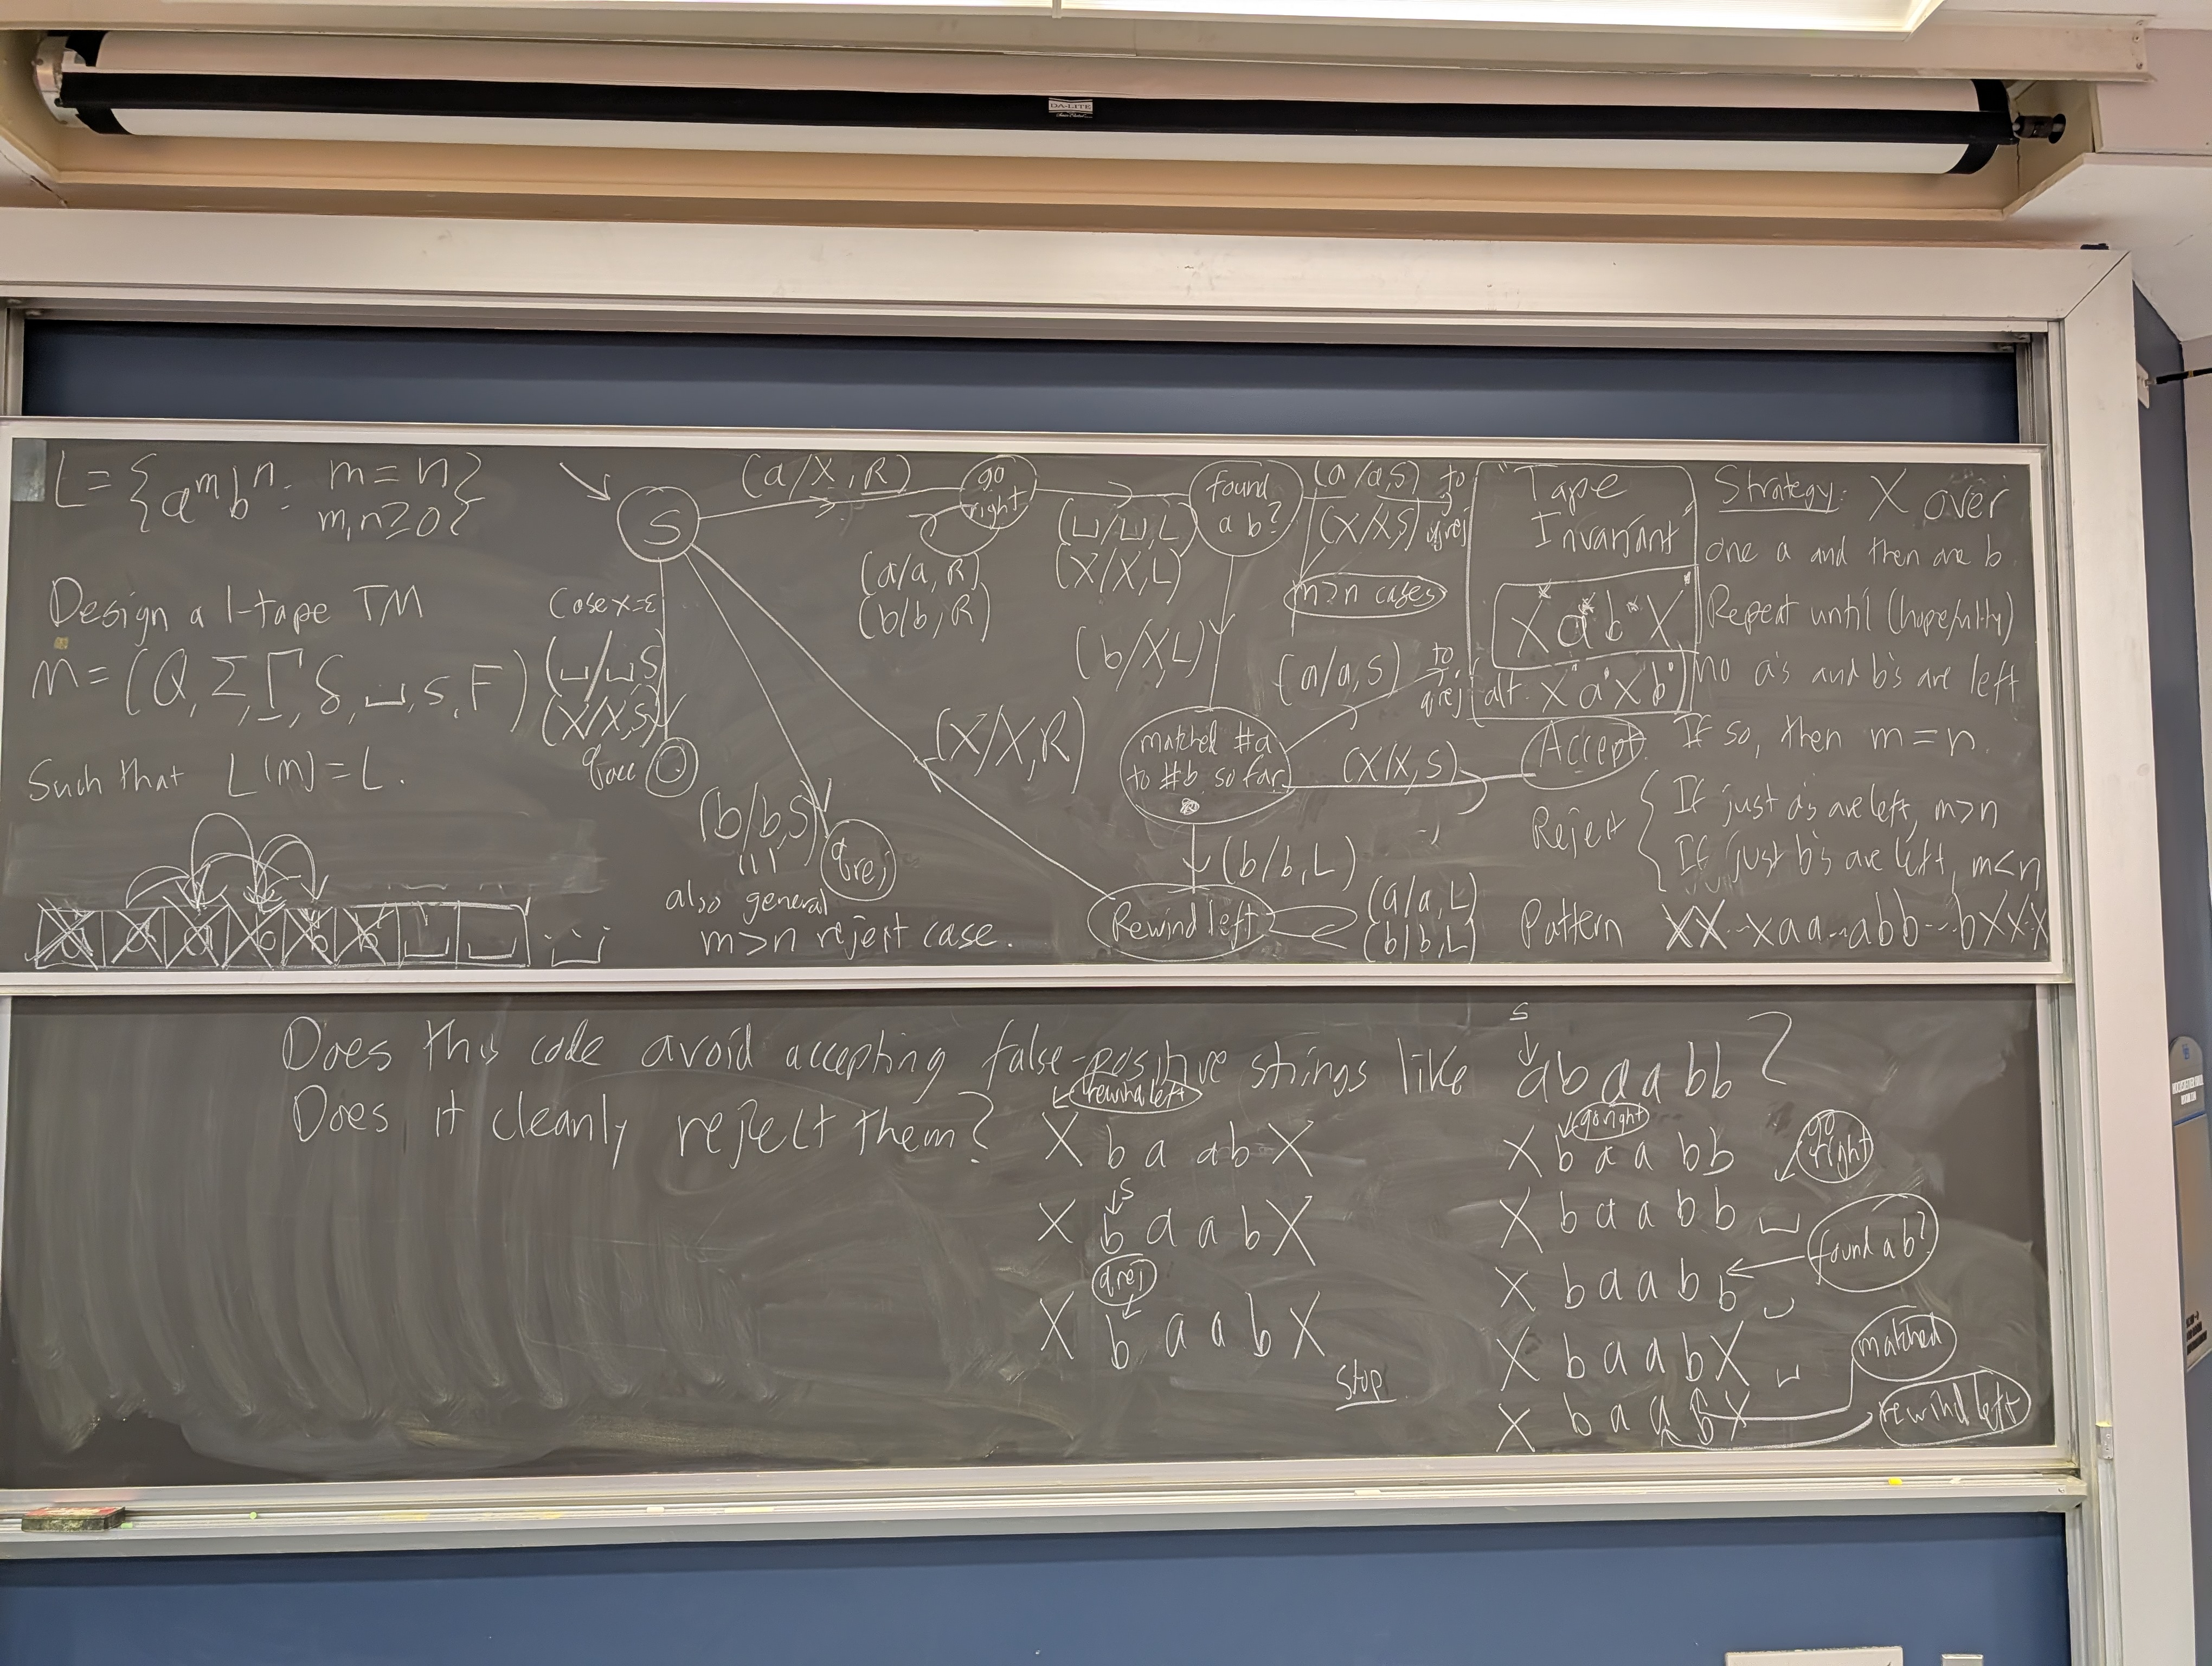 DA-LITE
L = {a^m b^n : m = n
m, n ≥ 0}
Design a 1-tape TM
M = (Q, Σ, Γ, δ, ⊔, s, F)
Such that L(M) = L.
S
(a/X, R)
go right
(a/a, R)
(b/b, R)
(⊔/⊔, L)
(X/X, L)
found a b?
(a/a, S) to
(X/X, S) qrej
m>n cases
Case x=ε
(⊔/⊔, S)
(X/X, S)
qacc
(b/b, S)
qrej
also general
m>n reject case.
(X/X, R)
(b/X, L)
matched #a
to #b so far
(a/a, S) to qrej
(X/X, S)
Accept
(b/b, L)
Rewind left
(a/a, L)
(b/b, L)
"Tape
Invariant"
X* a* b* X*
(alt. X* a* X* b*)
Strategy: X over
one a and then one b
Repeat until (hopefully)
no a's and b's are left
If so, then m = n.
Reject { If just a's are left, m>n
If just b's are left, m<n
Pattern XX--Xaa--abb---bXXX
Does this code avoid accepting false-positive strings like abaabb?
S
Does it cleanly reject them?
rewind left
X b a a b X
S
X b a a b X
qrej
X b a a b X
Stop
go right
X b a a b b
go right
X b a a b b ⊔
found a b?
X b a a b b ⊔
X b a a b X ⊔
matched
X b a a b X
rewind left